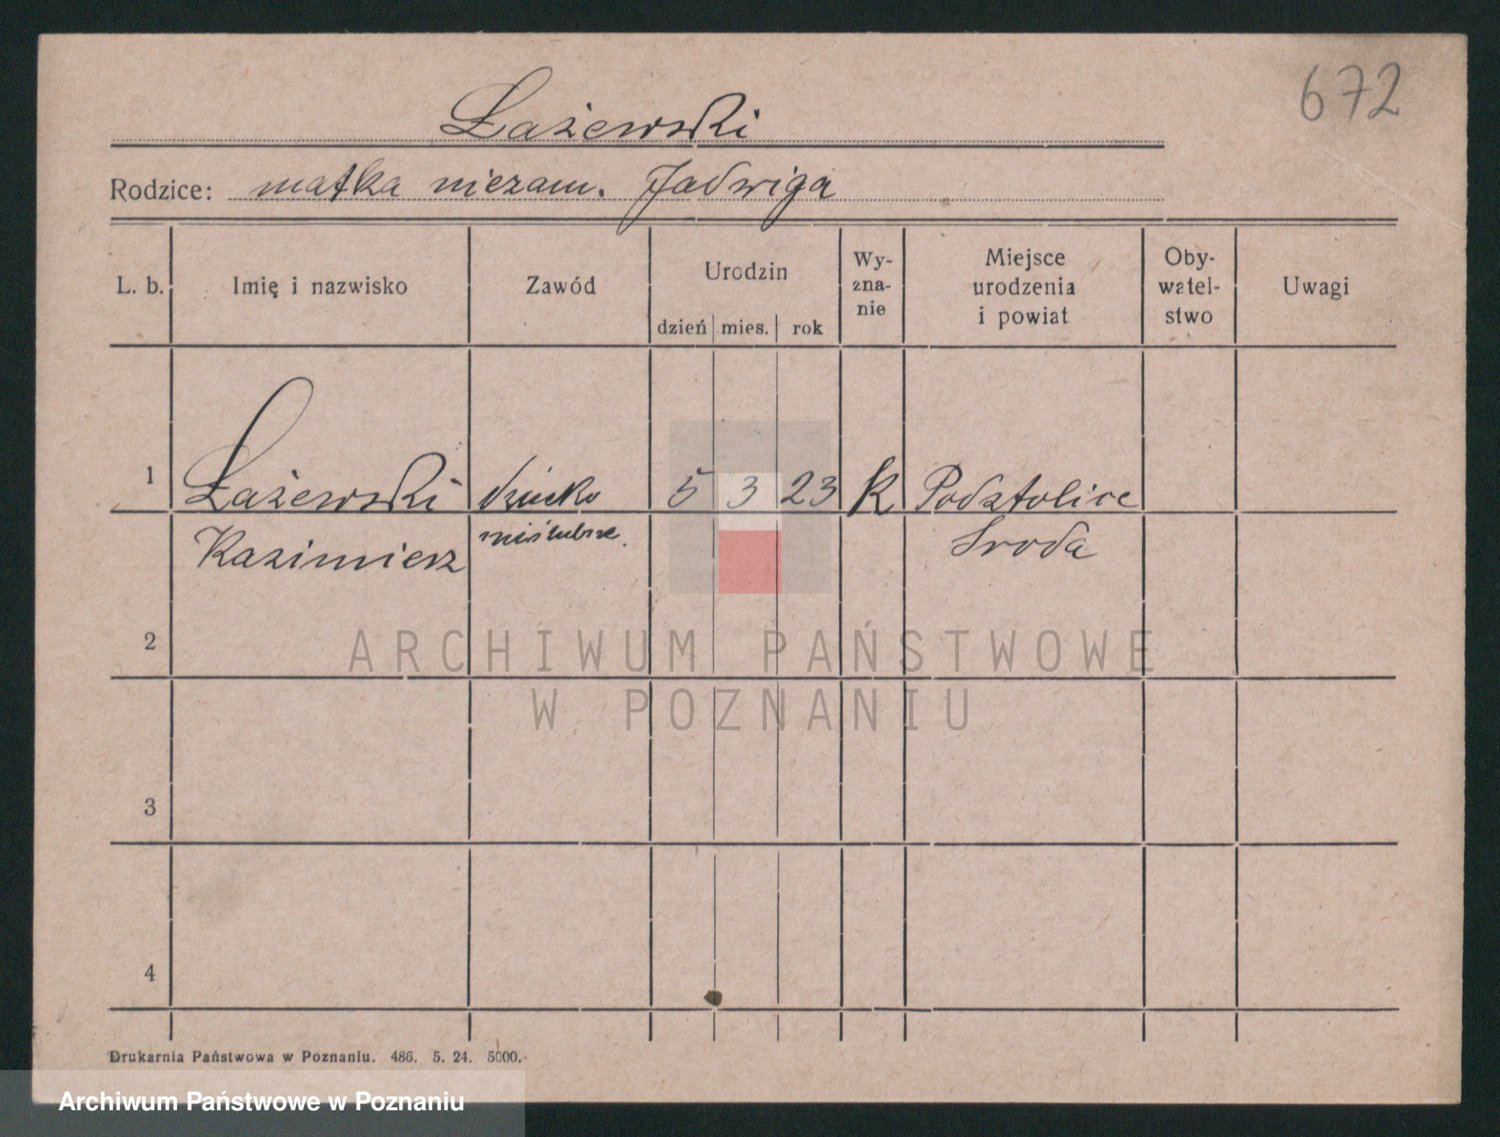 672
Łażewski
Rodzice: matka niezam. Jadwiga
L. b.
Imię i nazwisko
Zawód
Urodzin
dzień mies. rok
Wy-
zna-
nie
Miejsce
urodzenia
i powiat
Oby-
watel-
stwo
Uwagi
1 Łażewski dziecko 5 3 23 k Podstolice
Kazimierz nieślubne. Środa
2
3
4
ARCHIWUM PAŃSTWOWE
W POZNANIU
Drukarnia Państwowa w Poznaniu. 486. 5. 24. 5000.
Archiwum Państwowe w Poznaniu